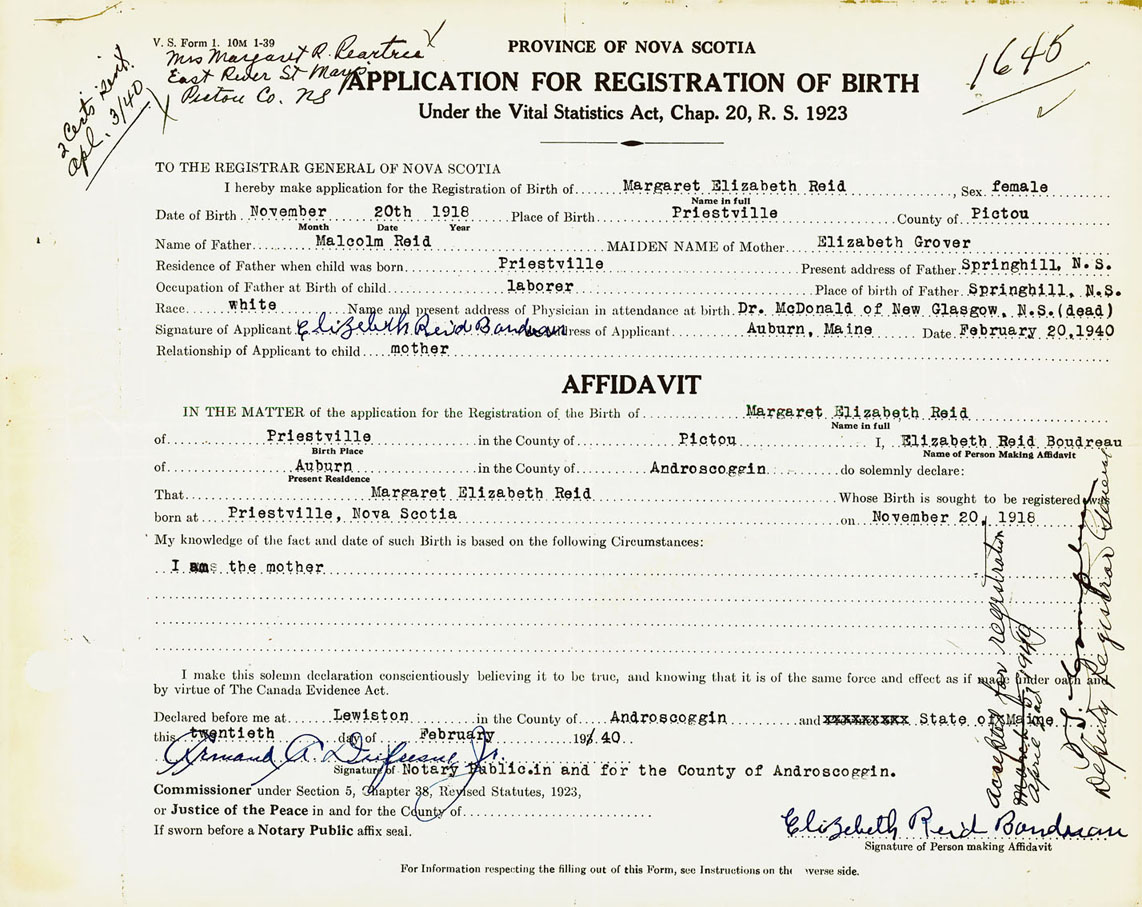 V. S. Form 1. 10M 1-39
Mrs Margaret R.
East River St Marys
Pictou Co. NS
2 Certs Sent.
Apl. 3/40
1645
PROVINCE OF NOVA SCOTIA
APPLICATION FOR REGISTRATION OF BIRTH
Under the Vital Statistics Act, Chap. 20, R. S. 1923
TO THE REGISTRAR GENERAL OF NOVA SCOTIA
I hereby make application for the Registration of Birth of Margaret Elizabeth Reid, Sex female
Name in full
Date of Birth November 20th 1918 Place of Birth Priestville County of Pictou
Month Date Year
Name of Father Malcolm Reid MAIDEN NAME of Mother Elizabeth Grover
Residence of Father when child was born Priestville Present address of Father Springhill, N.S.
Occupation of Father at Birth of child laborer Place of birth of Father Springhill, N.S.
Race white Name and present address of Physician in attendance at birth Dr. McDonald of New Glasgow, N.S.(dead)
Signature of Applicant Elizebeth Reid Boudreau ress of Applicant Auburn, Maine Date February 20,1940
Relationship of Applicant to child mother
AFFIDAVIT
IN THE MATTER of the application for the Registration of the Birth of Margaret Elizabeth Reid
Name in full
of Priestville in the County of Pictou I, Elizabeth Reid Boudreau
Birth Place Name of Person Making Affidavit
of Auburn in the County of Androscoggin do solemnly declare:
Present Residence
That Margaret Elizabeth Reid Whose Birth is sought to be registered was
born at Priestville, Nova Scotia on November 20, 1918
My knowledge of the fact and date of such Birth is based on the following Circumstances:
I am the mother
I make this solemn declaration conscientiously believing it to be true, and knowing that it is of the same force and effect as if made under oath and
by virtue of The Canada Evidence Act.
Declared before me at Lewiston in the County of Androscoggin and xxxxxxxxx State of Maine
this twentieth day of February 19 40
Armand A. Dufresne Jr.
Signature of Notary Public.in and for the County of Androscoggin.
Commissioner under Section 5, Chapter 38, Revised Statutes, 1923,
or Justice of the Peace in and for the County of
If sworn before a Notary Public affix seal.
Elizebeth Reid Boudreau
Signature of Person making Affidavit
For Information respecting the filling out of this Form, see Instructions on the verse side.
Accepted for registration
April 2nd 1940
Deputy Registrar General